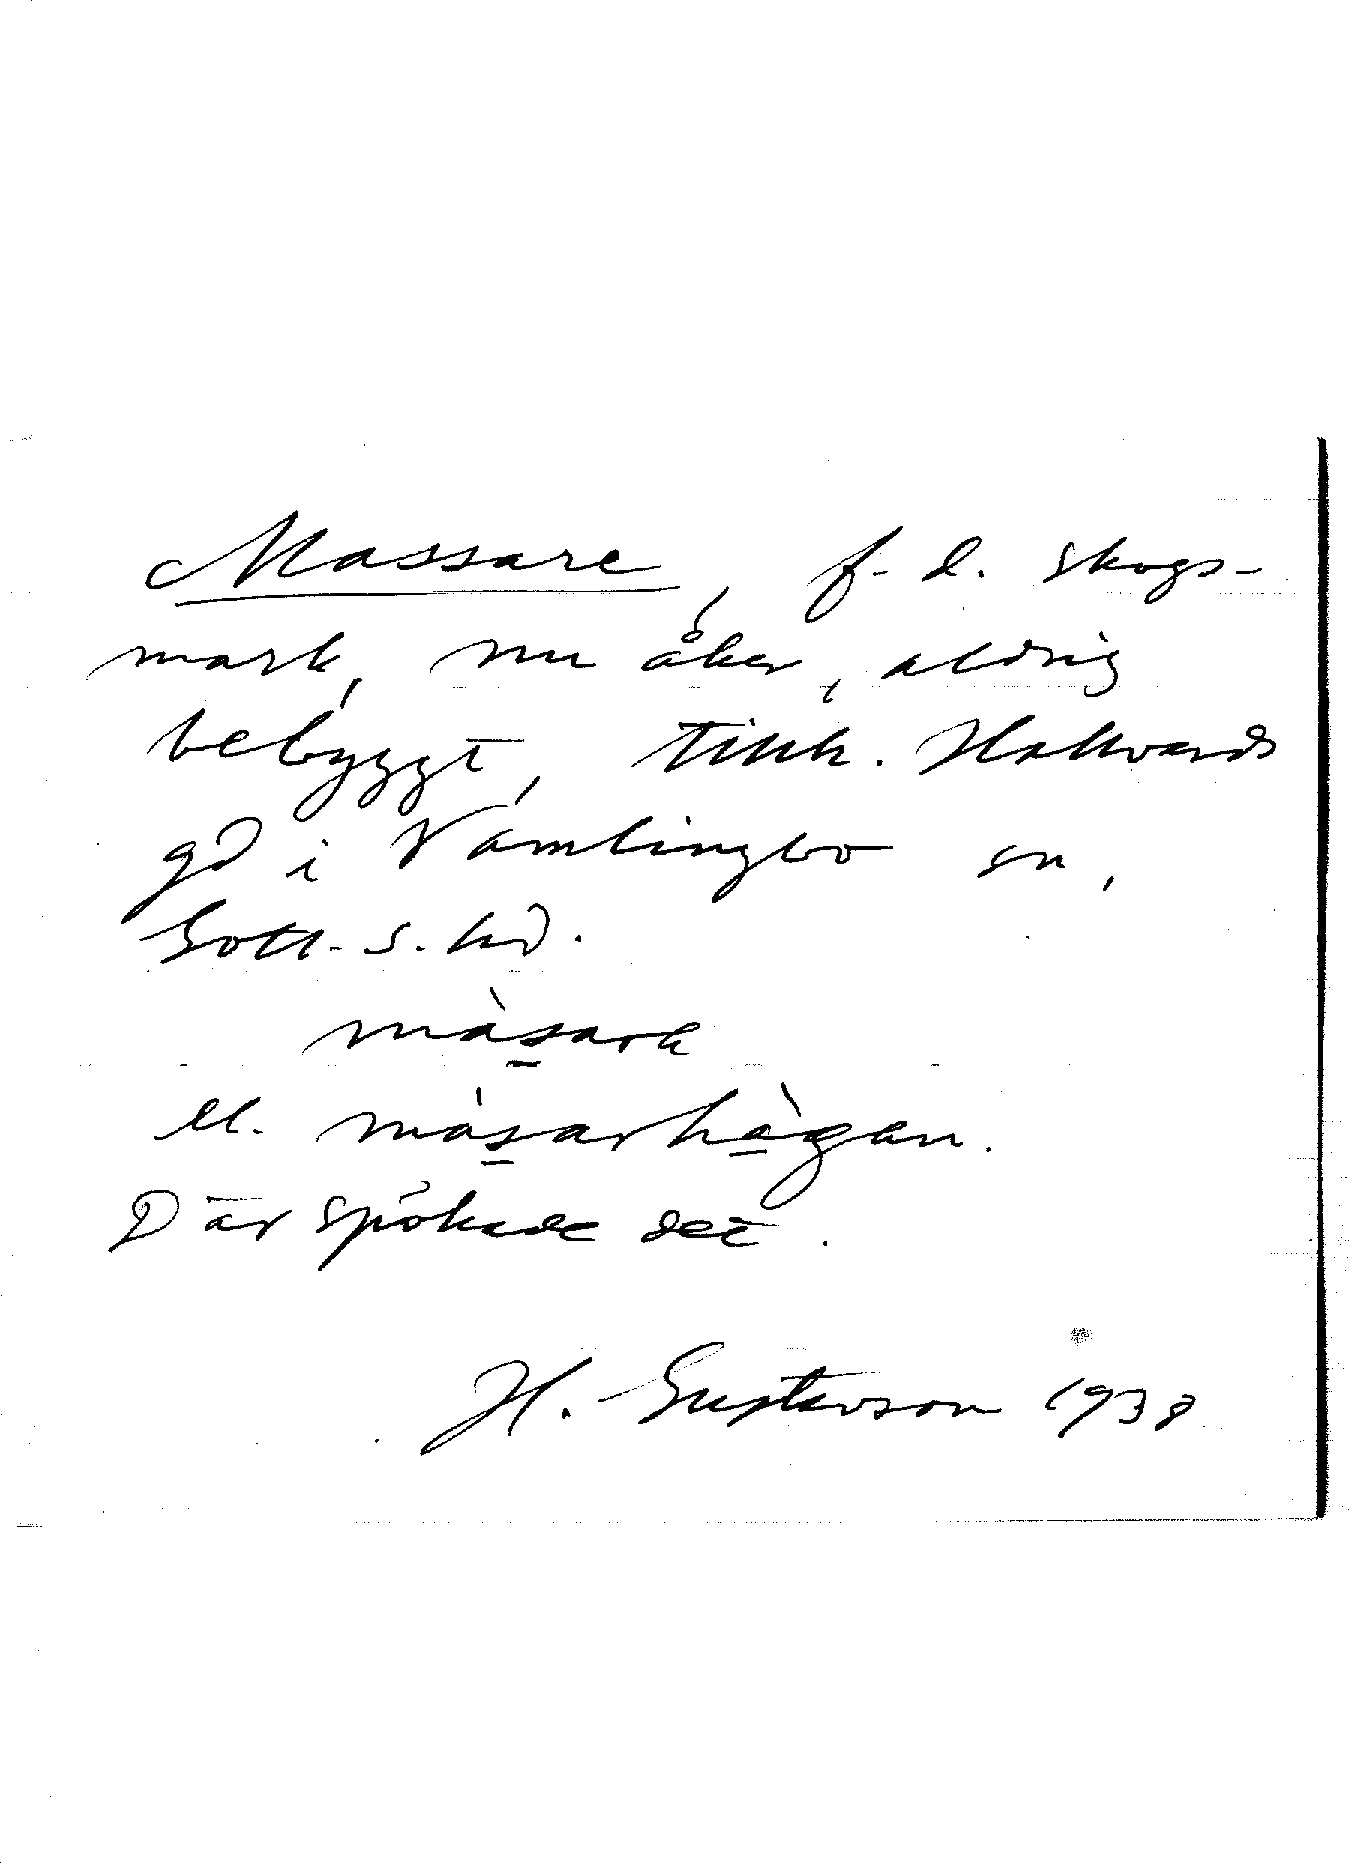 Massare, f.d. skogs-
mark, nu åker, aldrig
bebyggt, tillh. Hallvards
gd i Vamlingbo sn,
Gotl. S. hd.
màs̲ark
el. màs̲arhàgen.
Där spökade det.
H. Gustavson 1938